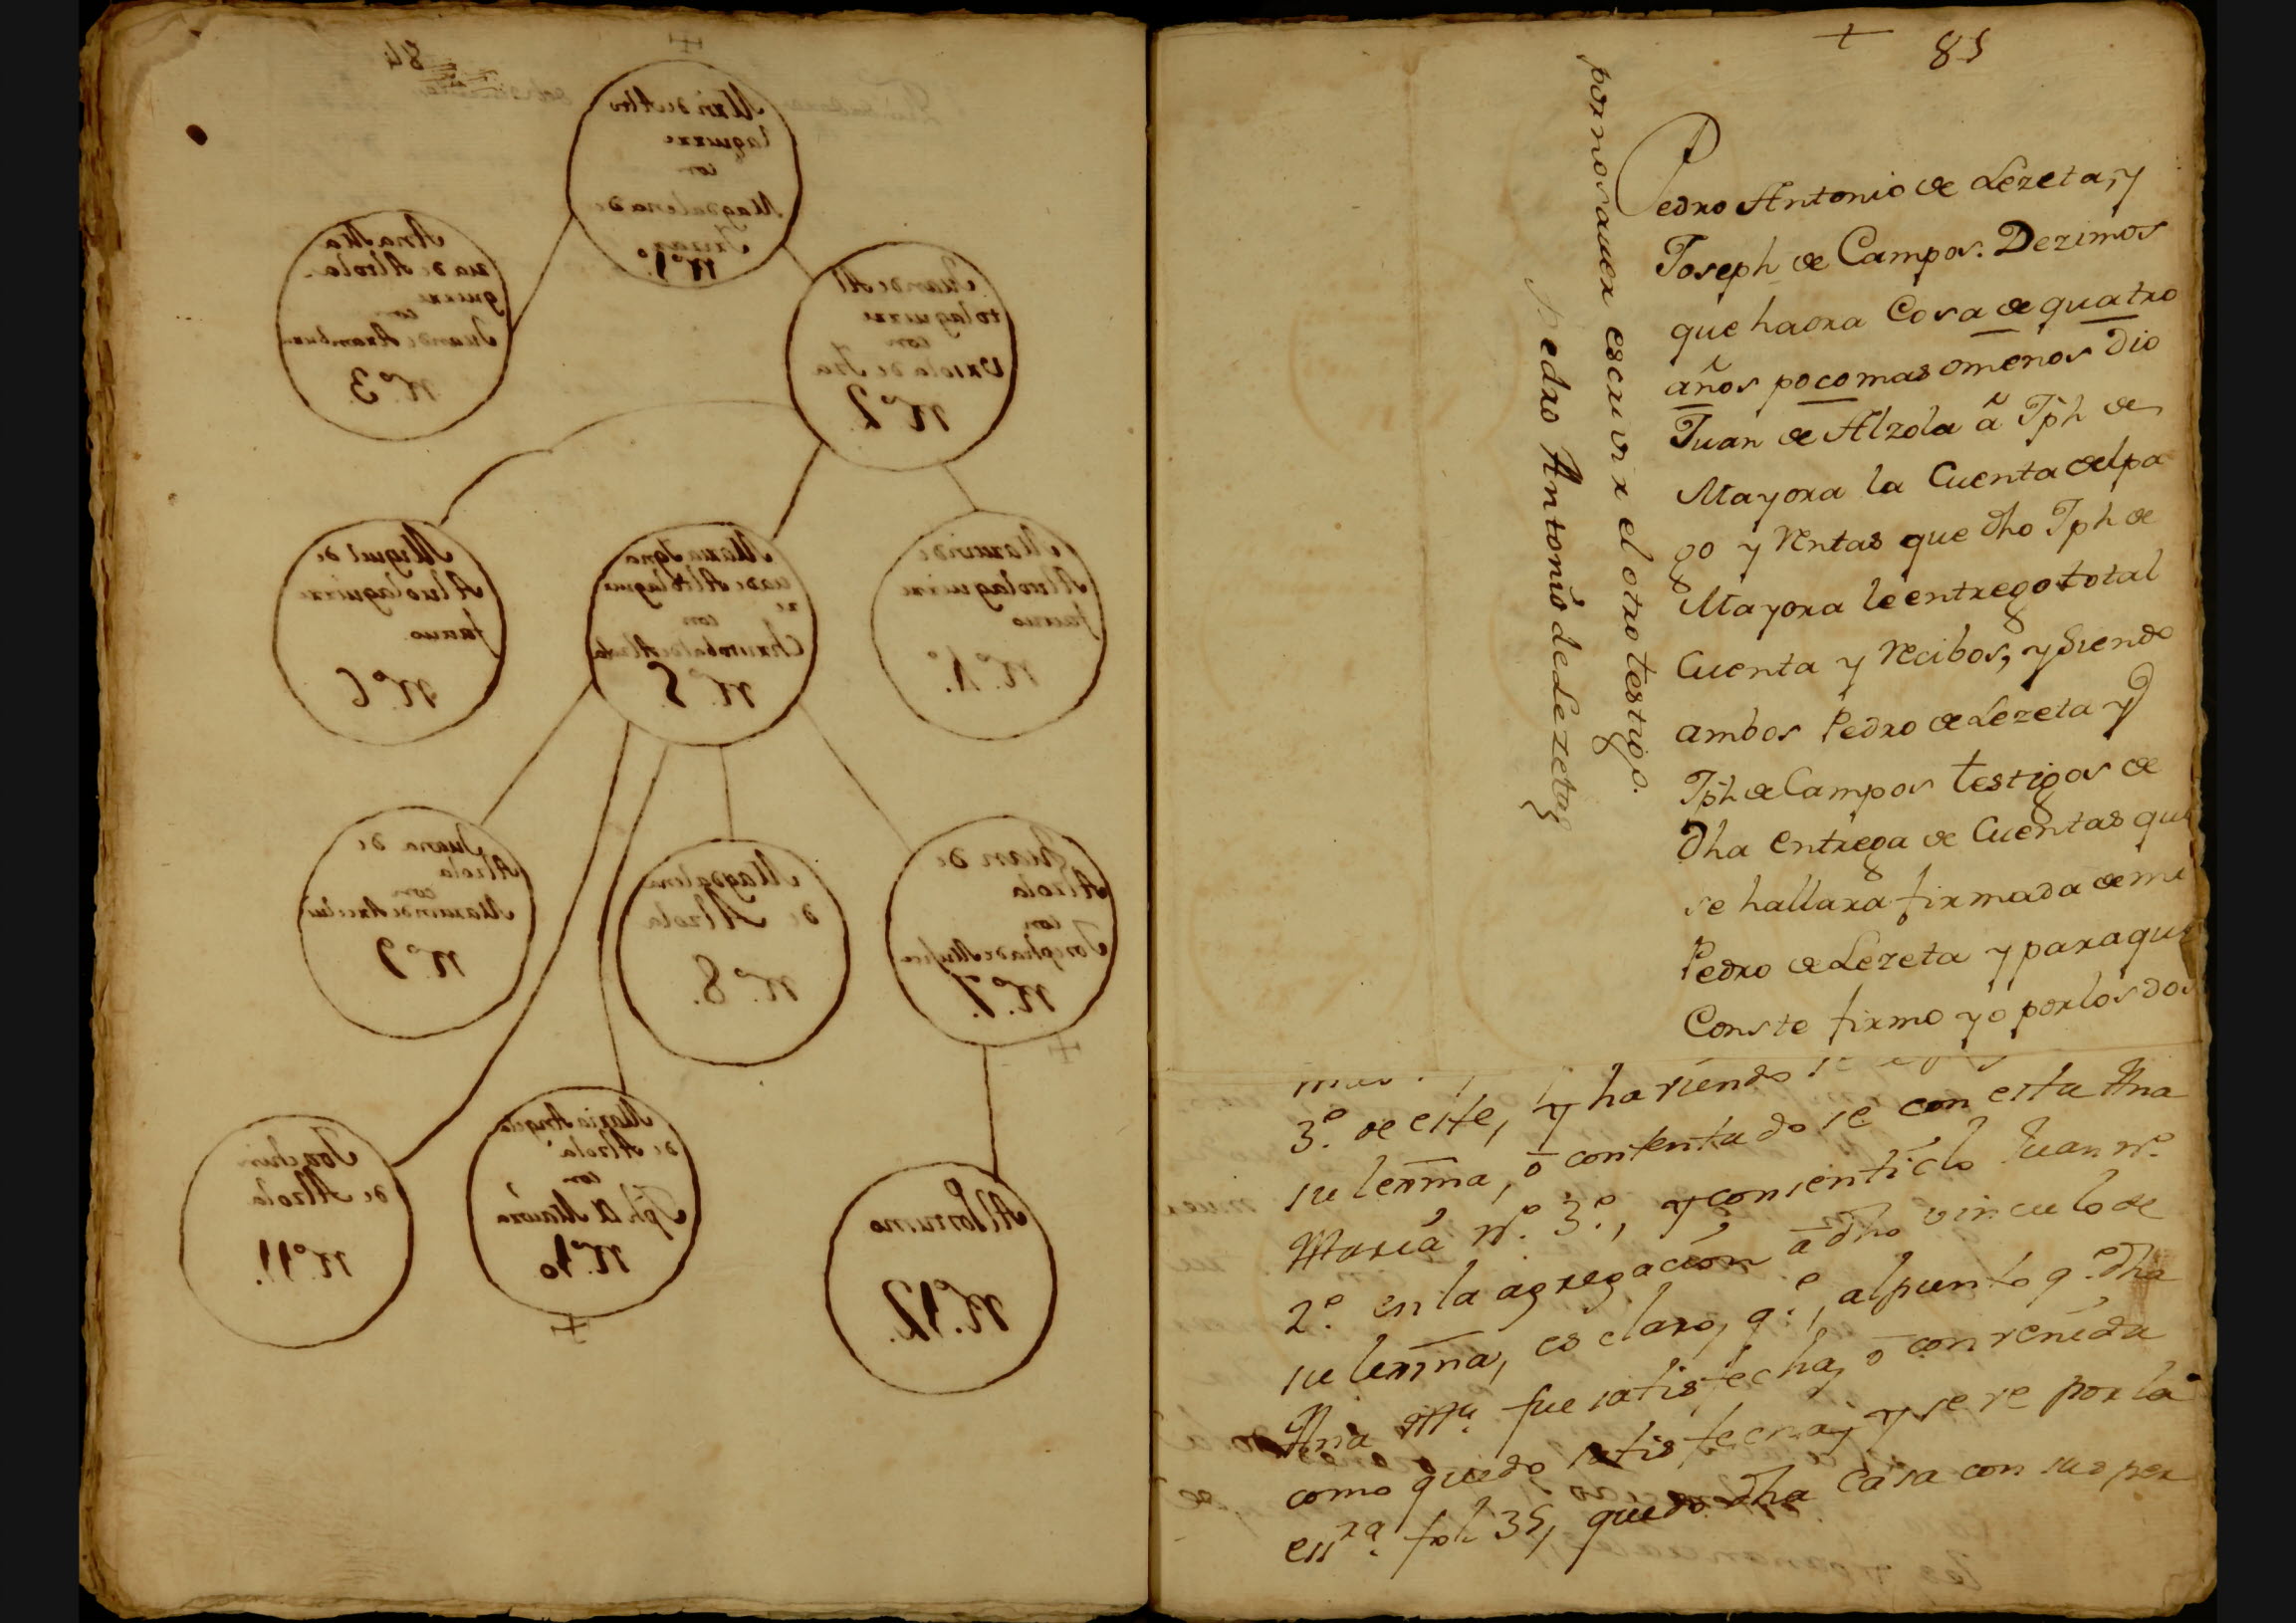 84
Marn de Alto
laguirre
con
Magdalena de
Nº 1º
Ana Ma
ria de Altola
guirre
con
Juan de Aramburu
Nº 3.
Juan de Al
tolaguirre
con
Vrsola de Iza
Nº 2
Miguel de
Altolaguirre
Nº 6
Maria Igna
cia de Altolaguir
re
con
Christobal de Alzola
Nº 5
Martin de
Altolaguirre
Nº 4.
Juana de
Alzola
con
Nº 9
Magdalena
de Alzola
Nº 8.
Juan de
Alzola
con
Nº 7.
Joachin
de Alzola
Nº 11.
Maria Angela
de Alzola
con
Jph de Maiora
Nº 10
Alonsumo
Nº 12.
+ 85
Pedro Antonio de Lezeta, y
Joseph de Campos. Dezimos
que haora Cosa de quatro
años poco mas omenos Dio
Juan de Alzola â Jph de
Mayora la Cuenta del pa
go y Rentas que dho Jph de
Mayora le entrego total
Cuenta y Recibos, y Siendo
ambos Pedro de Lezeta y
Jph de Campos testigos de
dha entrega de Cuentas que
se hallara firmada de mi
Pedro de Lezeta y para que
Conste firmo yo por los dos
por no saver escruvir el otro testigo.
Pedro Antonio de Lezeta
3º. de este, y haviendo
su lexma, ô contentadose con esta Ana
Maria nº. 3º., y consentido Juan nº.
2º. en la agregacion â dho vinculo de
su lexma, es claro, q.e, al punto q.e dha
Ana Mª. fue satisfecha, ô convenida
como quedo satisfecha, y se ve por la
essra. fol 35, quedo dha Casa con sus per